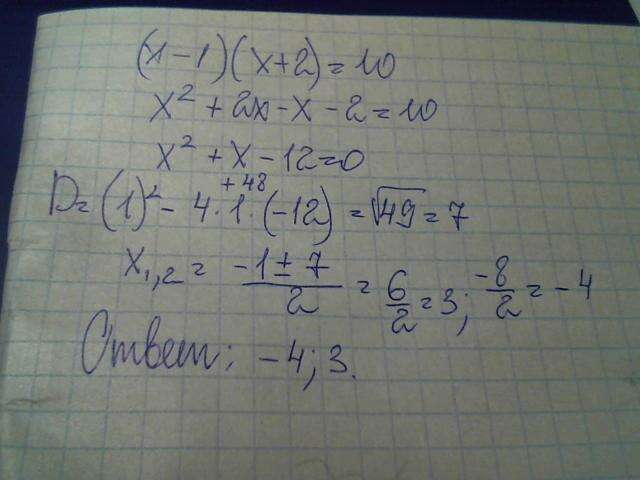 (x-1)(x+2)=10
x²+2x-x-2=10
x²+x-12=0
+48
D=(1)²-4·1·(-12)=√49=7
x₁,₂= (-1±7)/2 = 6/2=3; -8/2=-4
Ответ: -4; 3.